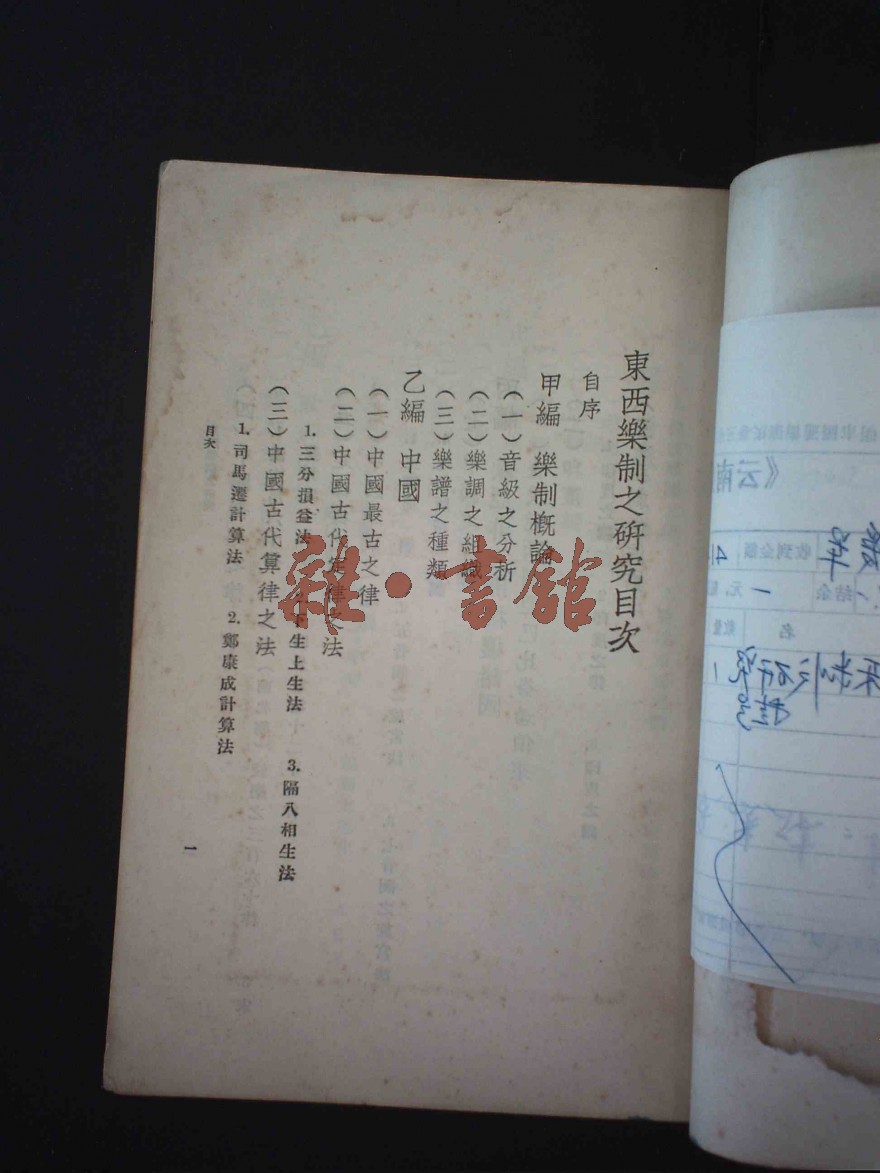 東西樂制之硏究目次
自序
甲編 樂制概論
（一）音級之分析
（二）樂調之組織
（三）樂譜之種類
乙編 中國
（一）中國最古之律
（二）中國古代定律之法
1. 三分損益法 2. 下生上生法 3. 隔八相生法
（三）中國古代算律之法
1. 司馬遷計算法 2. 鄭康成計算法
目次
一
雜·書館